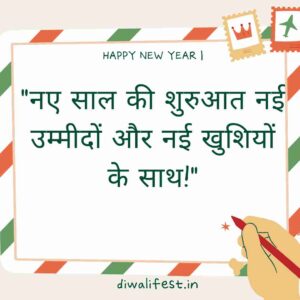 HAPPY NEW YEAR |
"नए साल की शुरुआत नई
उम्मीदों और नई खुशियों
के साथ!"
diwalifest.in